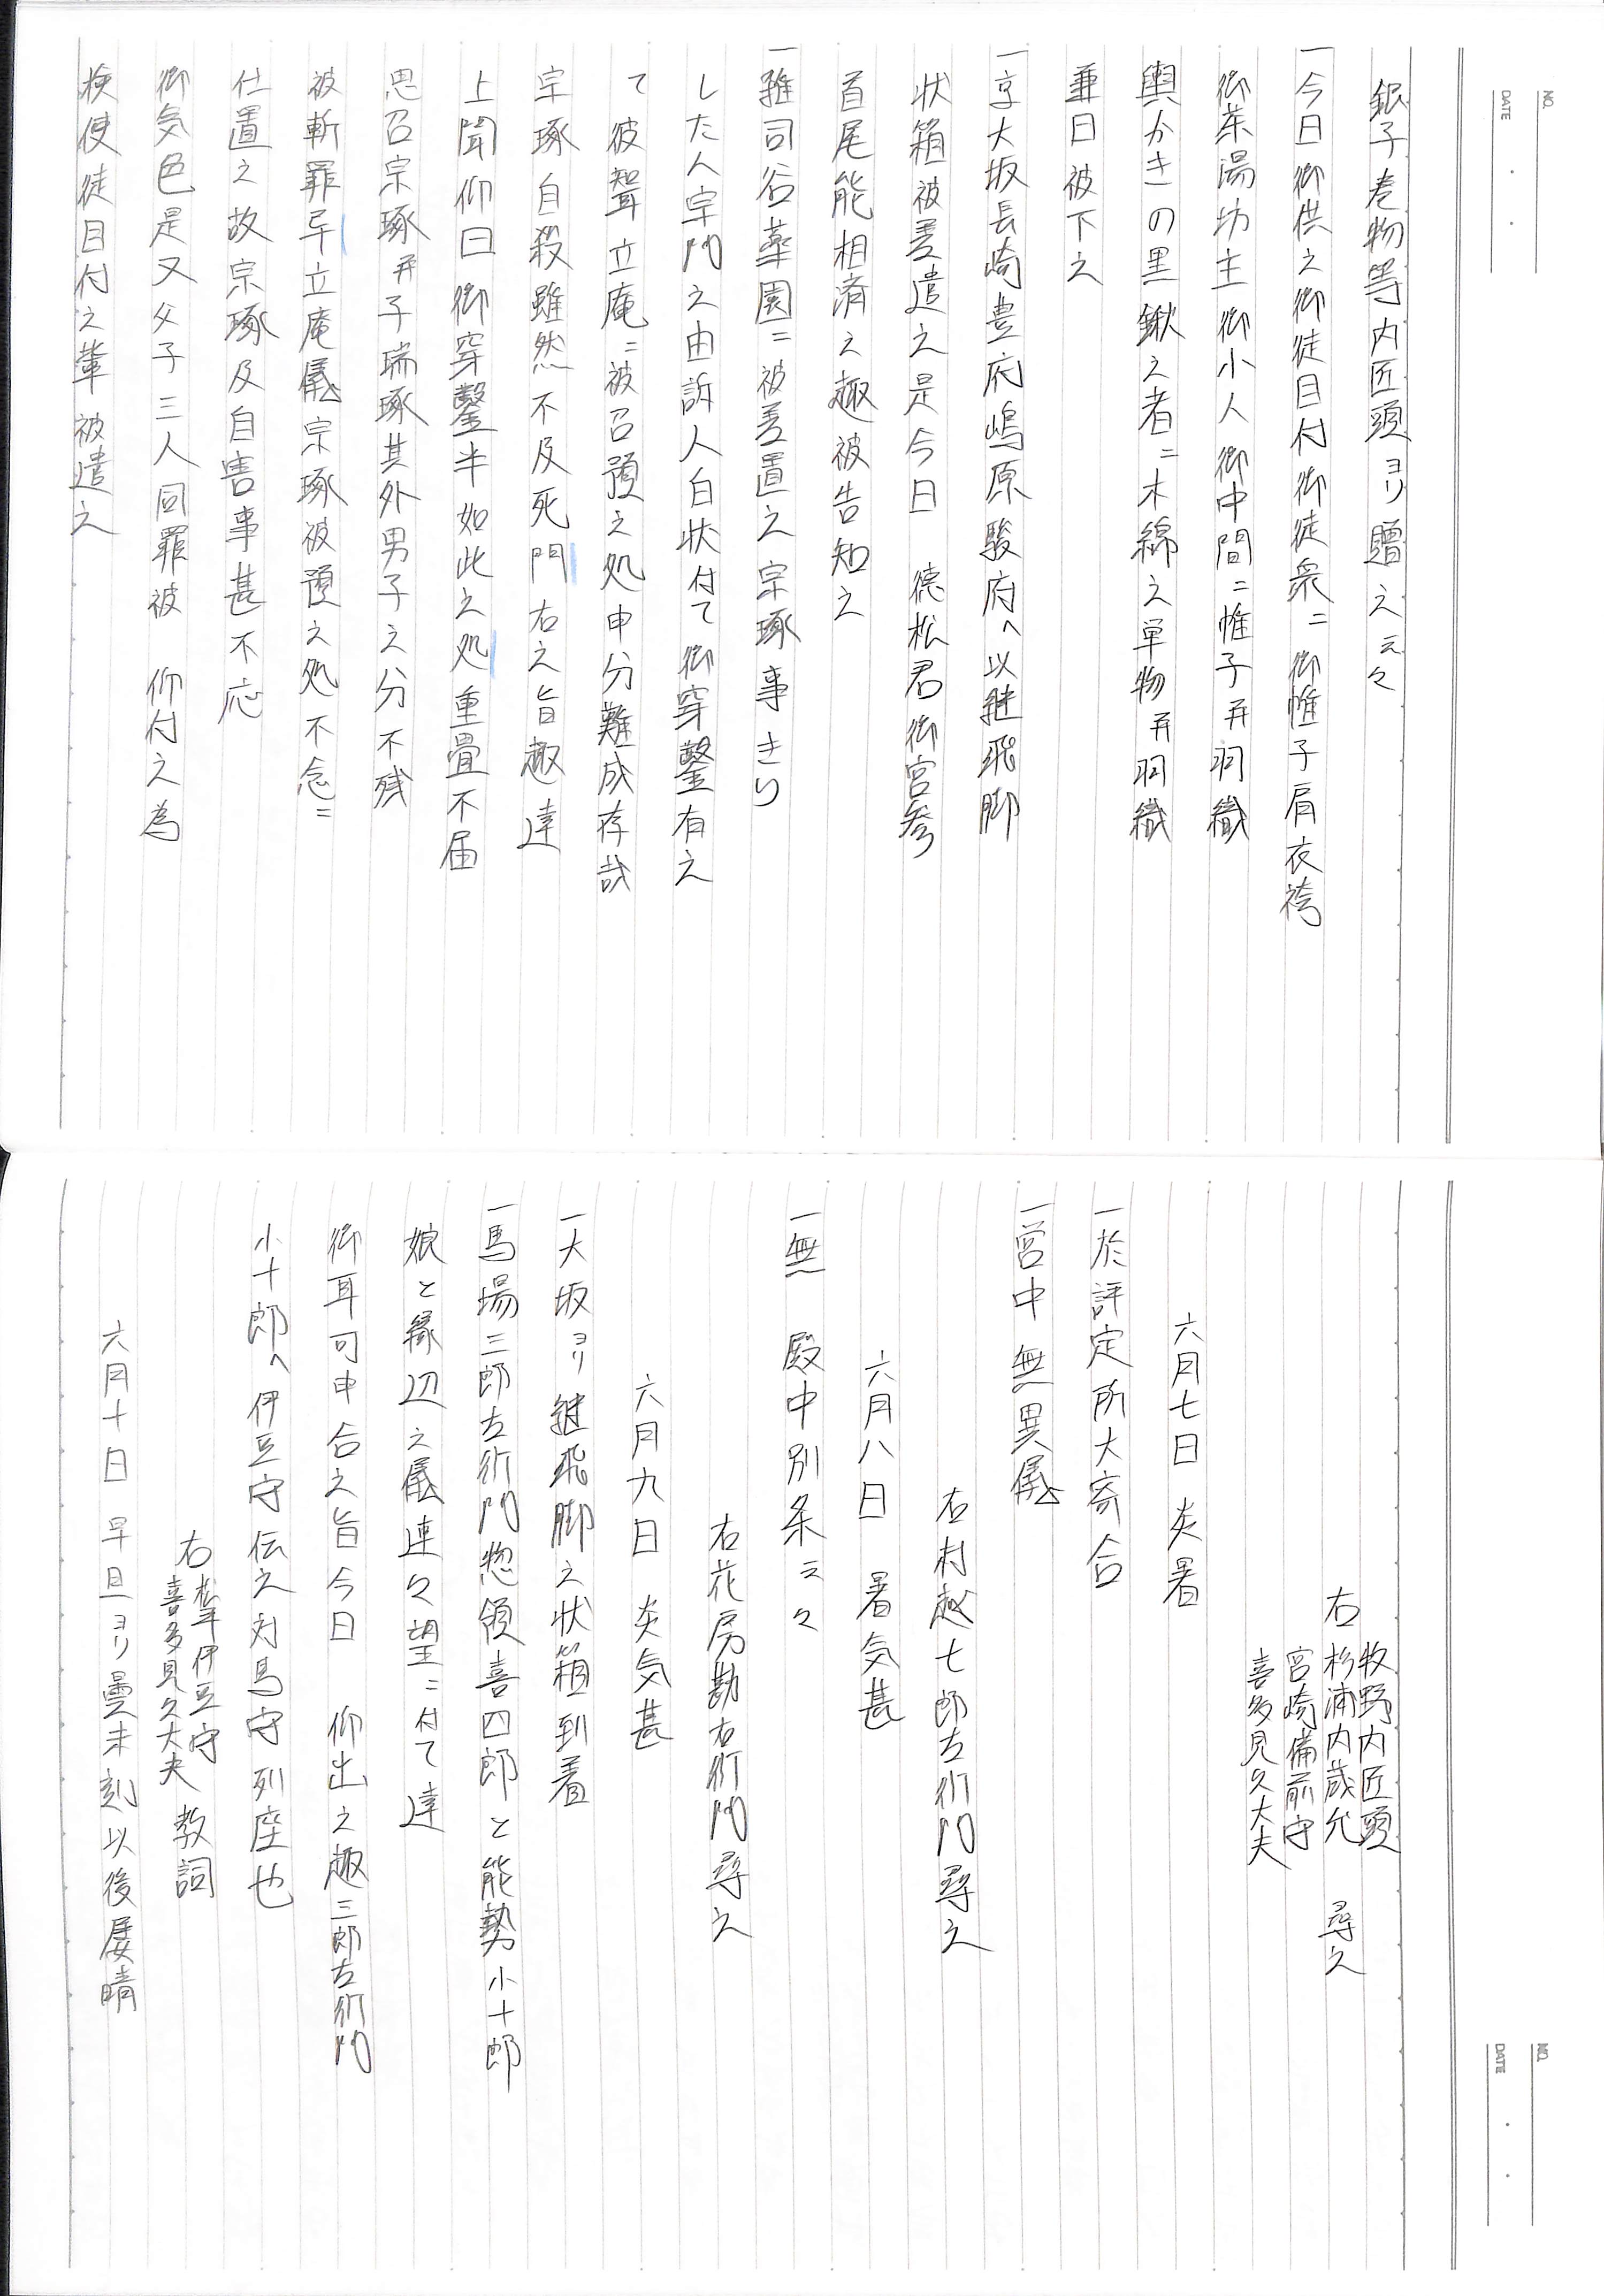 NO.
DATE
銀子巻物等内匠頭ヨリ贈之云々
一今日御供之御徒目付御徒衆ニ御帷子肩衣袴
御茶湯坊主御小人御中間ニ帷子并羽織
輿かきの黒鍬之者ニ木綿之単物并羽織
兼日被下之
一京大坂長崎豊府嶋原駿府ヘ以継飛脚
状箱被差遣之是今日 徳松君御宮参
首尾能相済之趣被告知之
一雑司谷薬園ニ被差置之宗琢事きり
したん宗門之由訴人白状付て御穿鑿有之
て彼聟立庵ニ被召預之処申分難成存哉
宗琢自殺雖然不及死門右之旨趣達
上聞仰曰御穿鑿半如此之処重畳不届
思召宗琢并子瑞琢其外男子之分不残
被斬罪早立庵儀宗琢被預之処不念ニ
仕置之故宗琢及自害事甚不応
御気色是又父子三人同罪被 仰付之為
検使徒目付之輩被遣之
NO.
DATE
牧野内匠頭
右杉浦内蔵允 尋之
宮崎備前守
喜多見久大夫
六月七日 炎暑
一於評定所大寄合
一営中無異儀
右村越七郎左衛門尋之
六月八日 暑気甚
一無 殿中別条云々
右花房勘右衛門尋之
六月九日 炎気甚
一大坂ヨリ継飛脚之状箱到着
一馬場三郎左衛門惣領喜四郎と能勢小十郎
娘と縁辺之儀連々望ニ付て達
御耳可申合之旨今日 仰出之趣三郎左衛門
小十郎ヘ伊豆守伝之対馬守列座也
右松平伊豆守
喜多見久大夫 教詞
六月十日 早旦ヨリ曇未刻以後屡晴